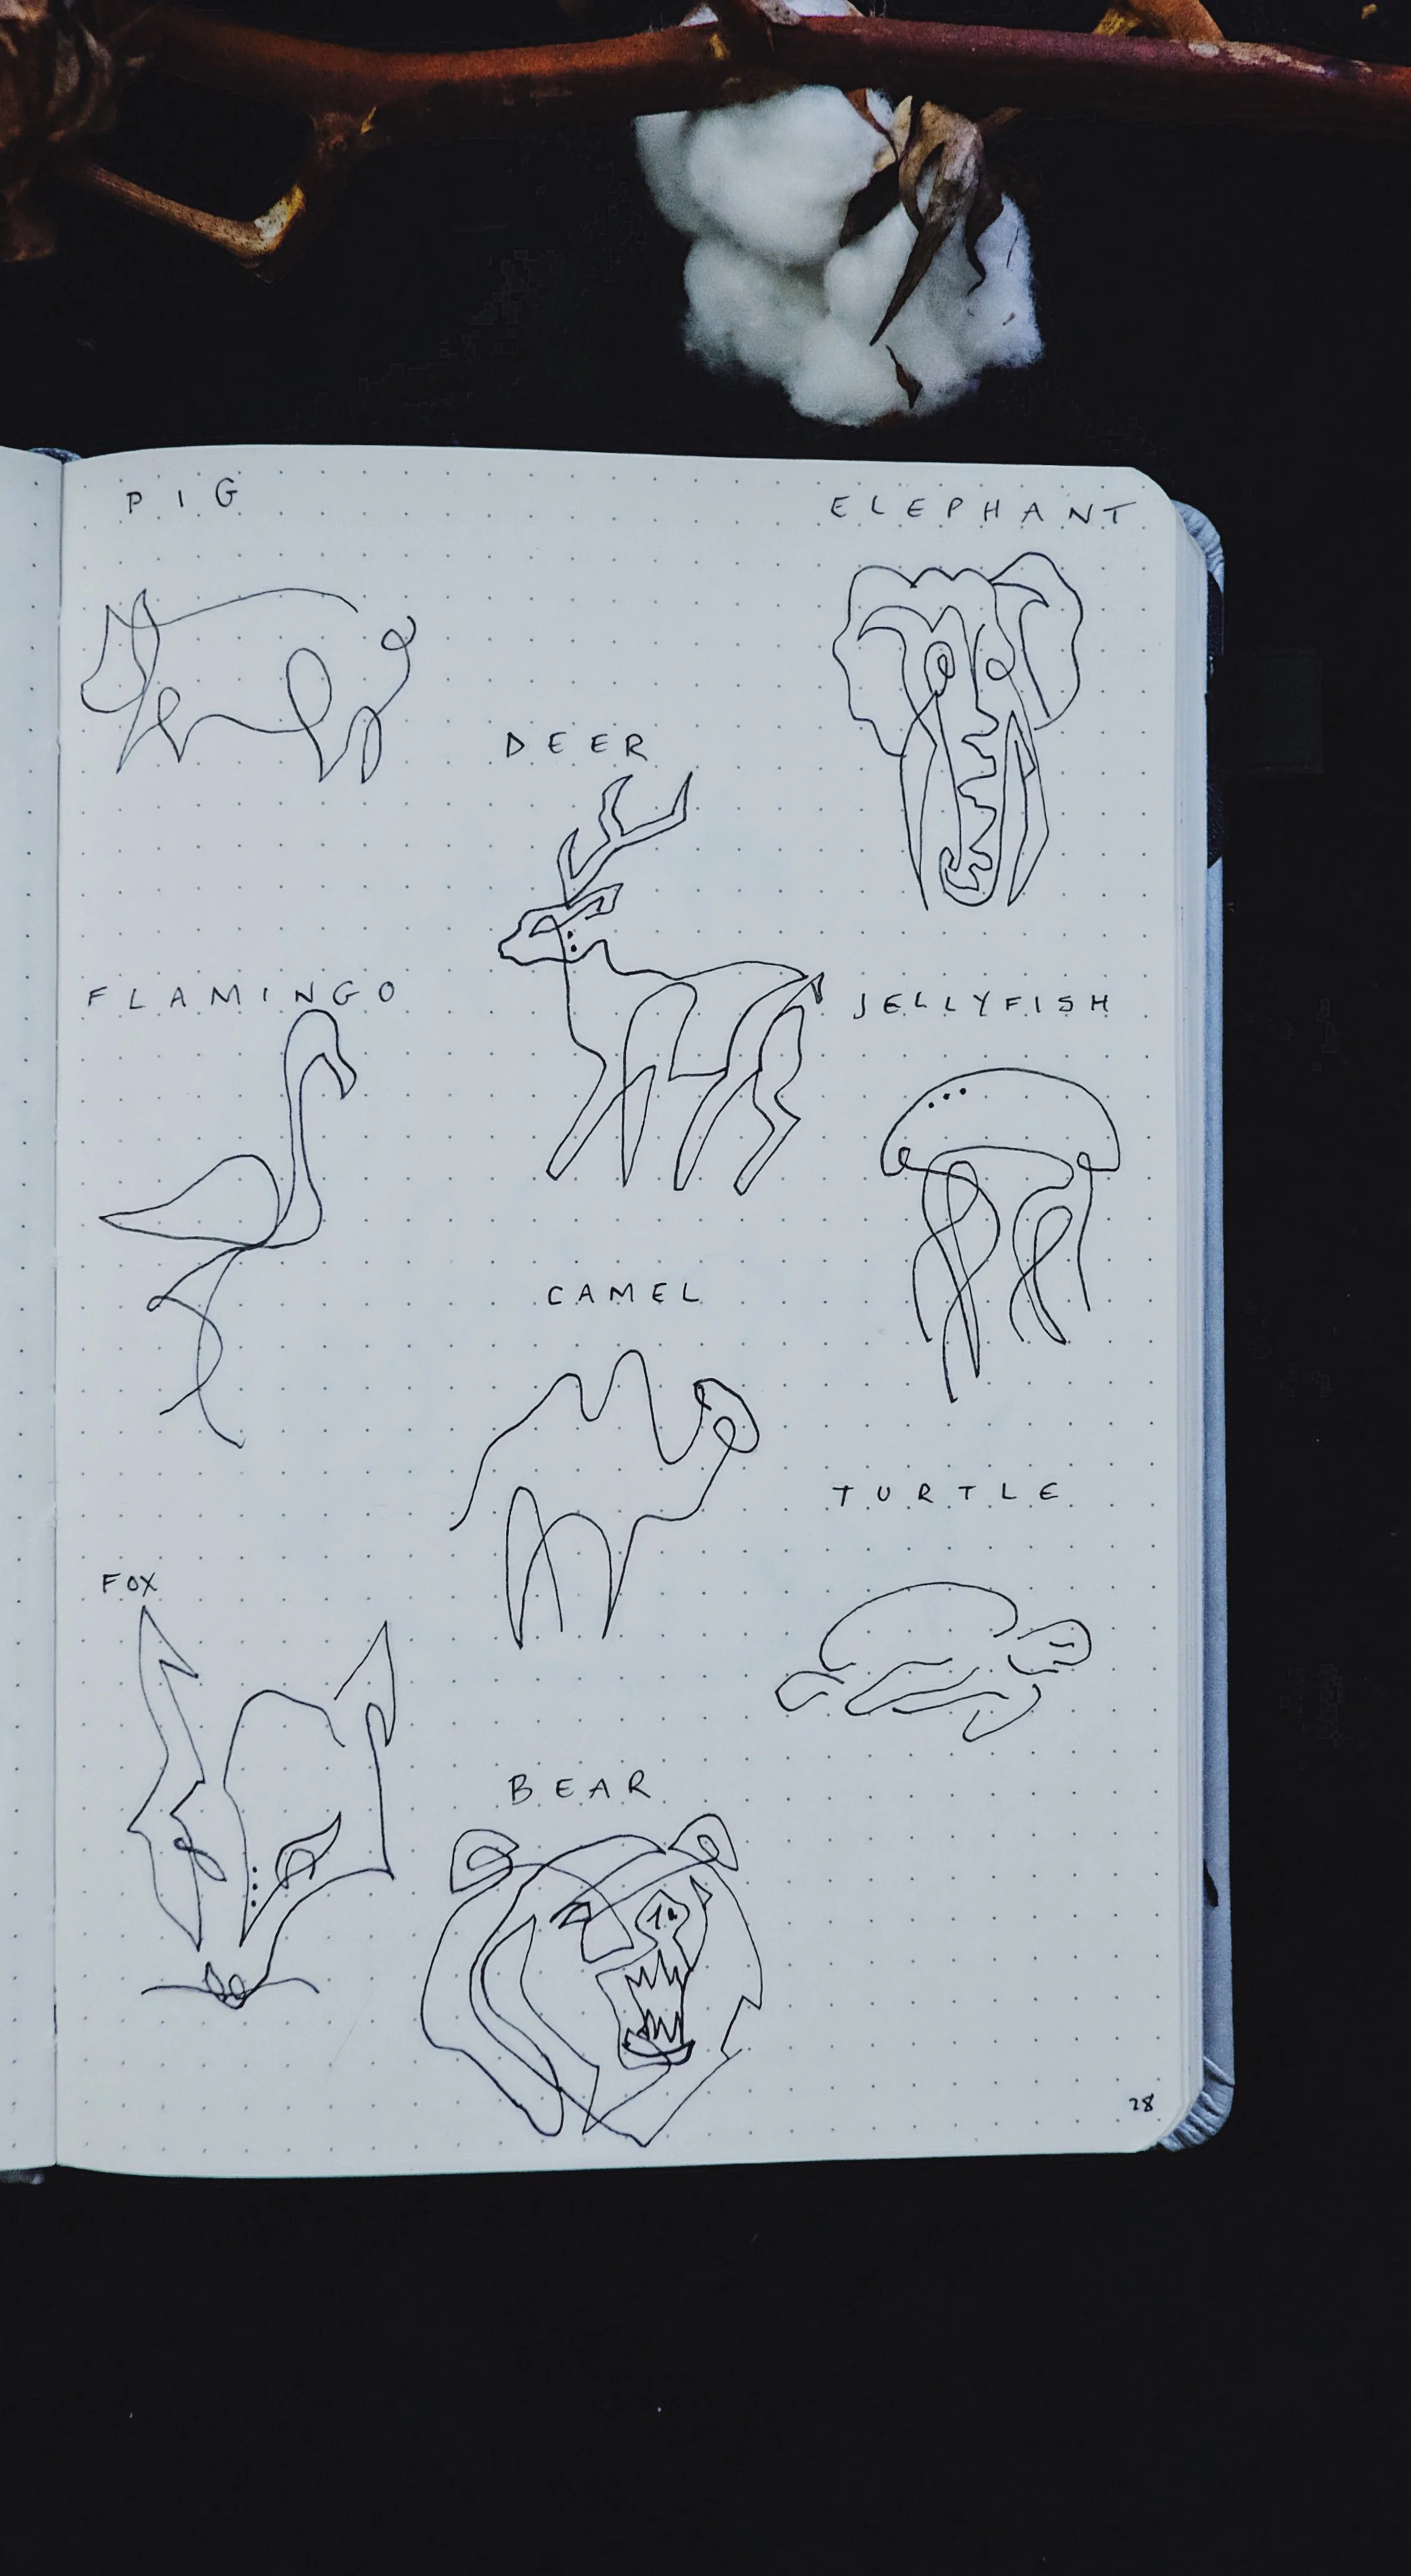 PIG
ELEPHANT
DEER
FLAMINGO
JELLYFISH
CAMEL
TURTLE
FOX
BEAR
28